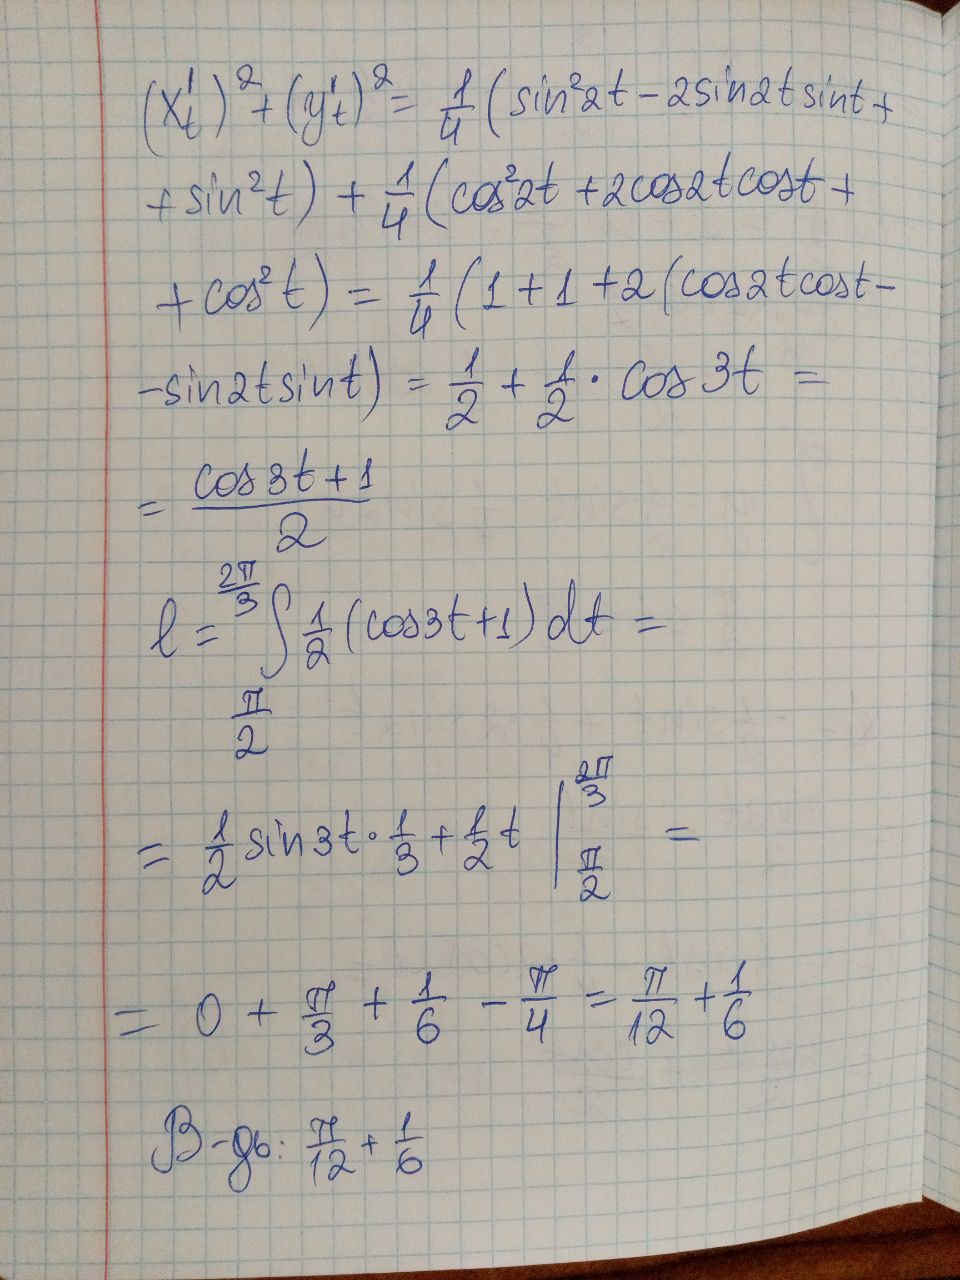 (x't)² + (y't)² = 1/4 (sin²2t - 2sin2t sint +
+ sin²t) + 1/4 (cos²2t + 2cos2tcost +
+ cos²t) = 1/4 (1 + 1 + 2(cos2tcost -
- sin2tsint) = 1/2 + 1/2 · cos3t =
= (cos3t + 1)/2
l = ∫_{π/2}^{2π/3} 1/2 (cos3t + 1) dt =
= 1/2 sin3t · 1/3 + 1/2 t |_{π/2}^{2π/3} =
= 0 + π/3 + 1/6 - π/4 = π/12 + 1/6
В-дь: π/12 + 1/6